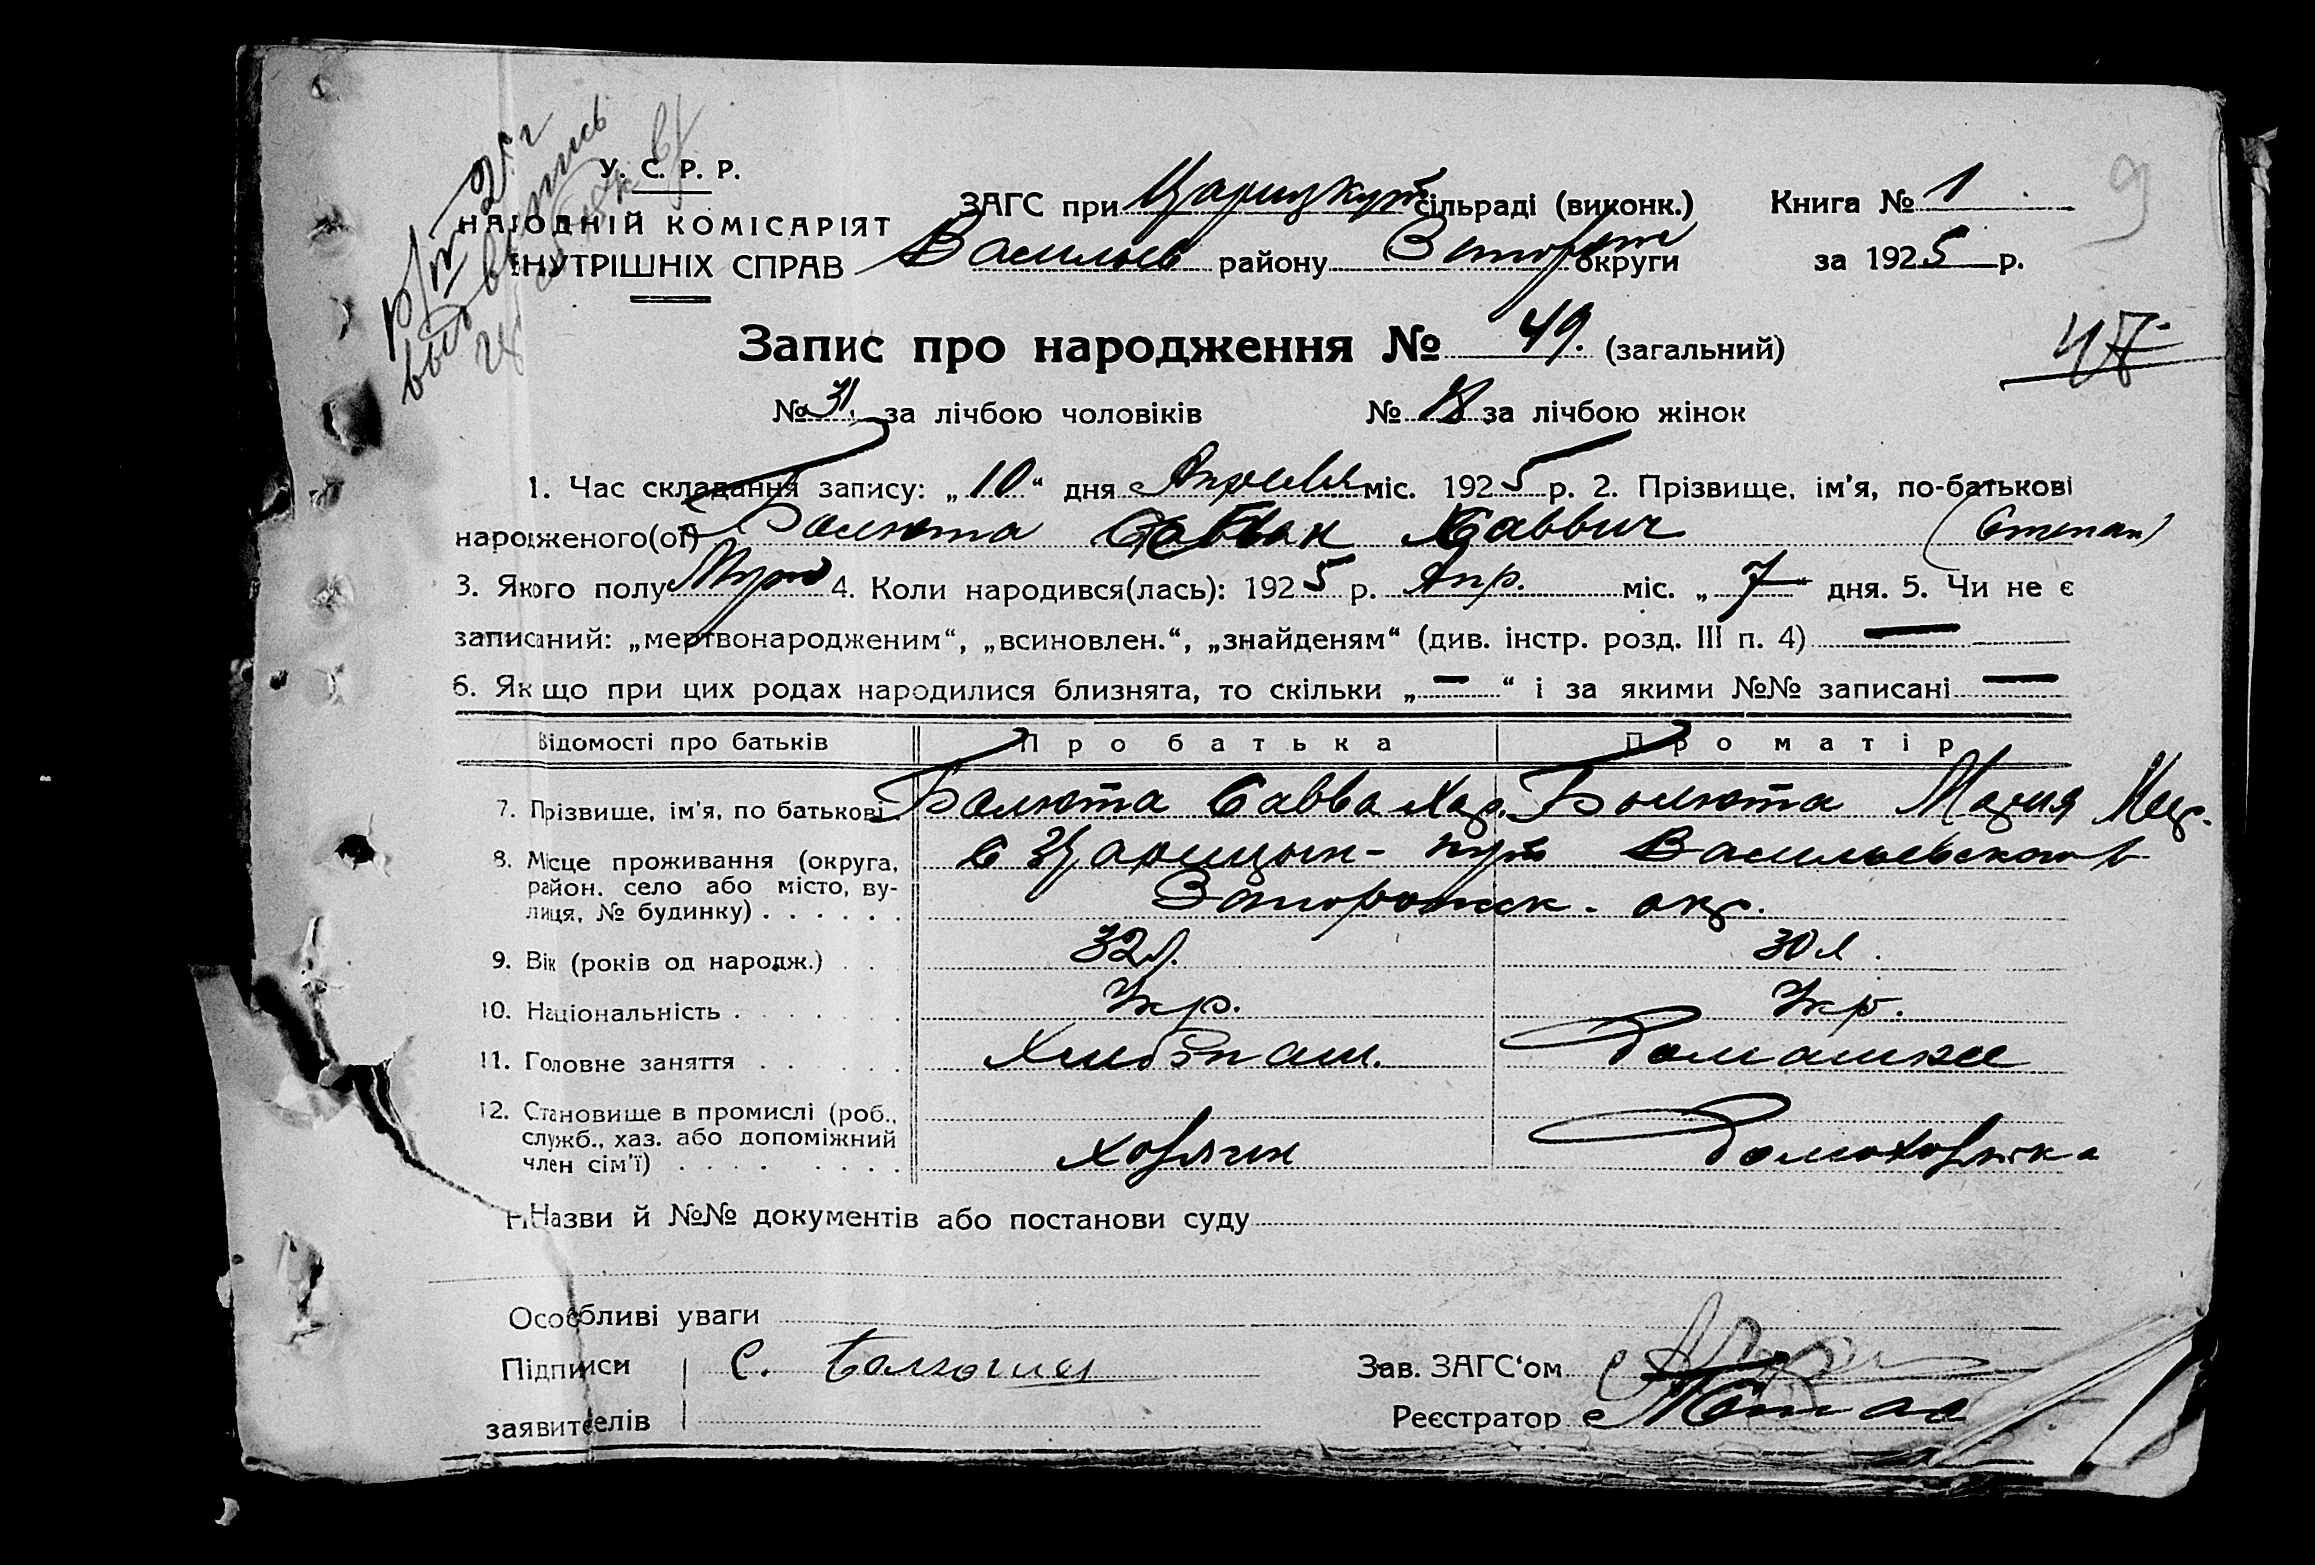 У. С. Р. Р.
НАРОДНІЙ КОМІСАРІЯТ
ВНУТРІШНІХ СПРАВ
ЗАГС при Царицкут сільраді (виконк.) Книга № 1
Васильев району Запорож округи за 1925 р.
9
Запис про народження № 49. (загальний)
47
№ 31. за лічбою чоловіків № 18 за лічбою жінок
1. Час складання запису: „10“ дня Апреля міс. 1925 р. 2. Прізвище, ім'я, по-батькові
народженого(ої) Балюта Саввич (Степан)
3. Якого полу Муж 4. Коли народився(лась): 1925 р. Апр. міс. „7“ дня. 5. Чи не є
записаний: „мертвонародженим“, „всиновлен.“, „знайденям“ (див. інстр. розд. III п. 4) —
6. Якщо при цих родах народилися близнята, то скільки „—“ і за якими №№ записані —
Відомості про батьків Про батька Про матір
7. Прізвище, ім'я, по батькові Балюта Савва Хар. Балюта Мария
8. Місце проживання (округа, с Царицын-кут Васильевского
район. село або місто, ву-
лиця, № будинку) . . . . . . Запорожск. окр.
9. Вік (років од народж.) . . 32 л. 30 л.
10. Національність . . . . . . . Укр. Укр.
11. Головне заняття . . . . . . Хлибопаш. Домашнее
12. Становище в промислі (роб.,
служб., хаз. або допоміжний
член сім'ї) . . . . . . . . . хозяин домохозяйка
Назви й №№ документів або постанови суду
Особливі уваги
Підписи С. Балюта Зав. ЗАГС'ом
заявителів Реєстратор